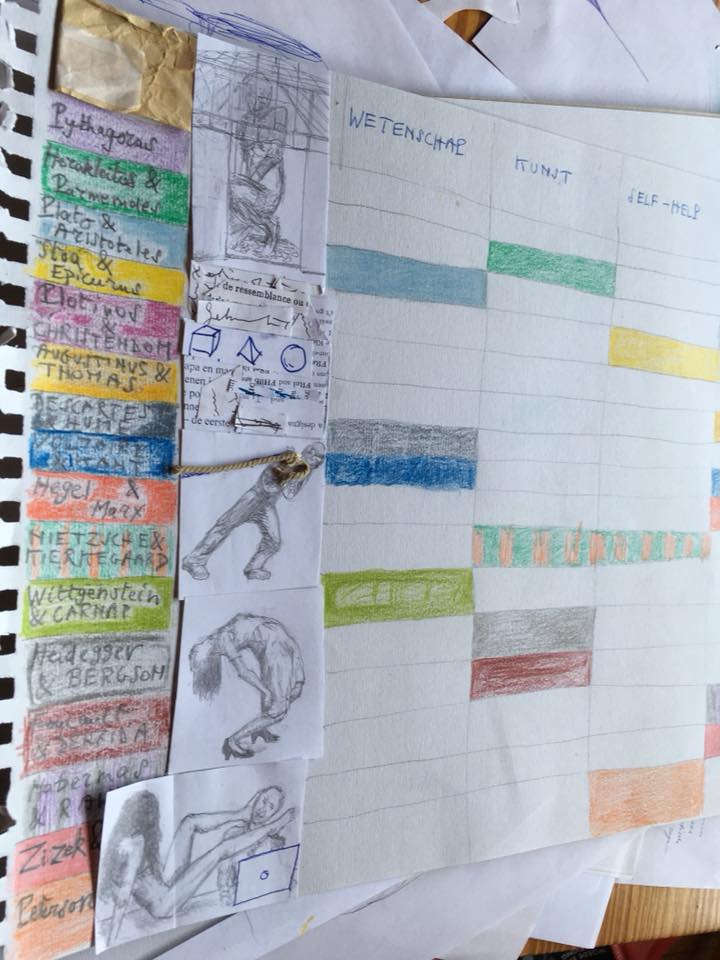 Pythagoras
Herakleitos &
Parmenides
Plato &
Aristoteles
Stoa &
Epicurus
Plotinos
&
CHRISTENDOM
AUGUSTINUS &
THOMAS
DESCARTES
HUME
VOLTAIRE
& KANT
Hegel &
Marx
NIETZSCHE &
KIERKEGAARD
Wittgenstein
& CARNAP
Heidegger
& BERGSON
Foucault
& DERRIDA
Habermas
&
Zizek &
Peterson
de ressemblance ou
- de eerste
WETENSCHAP
KUNST
SELF-HELP